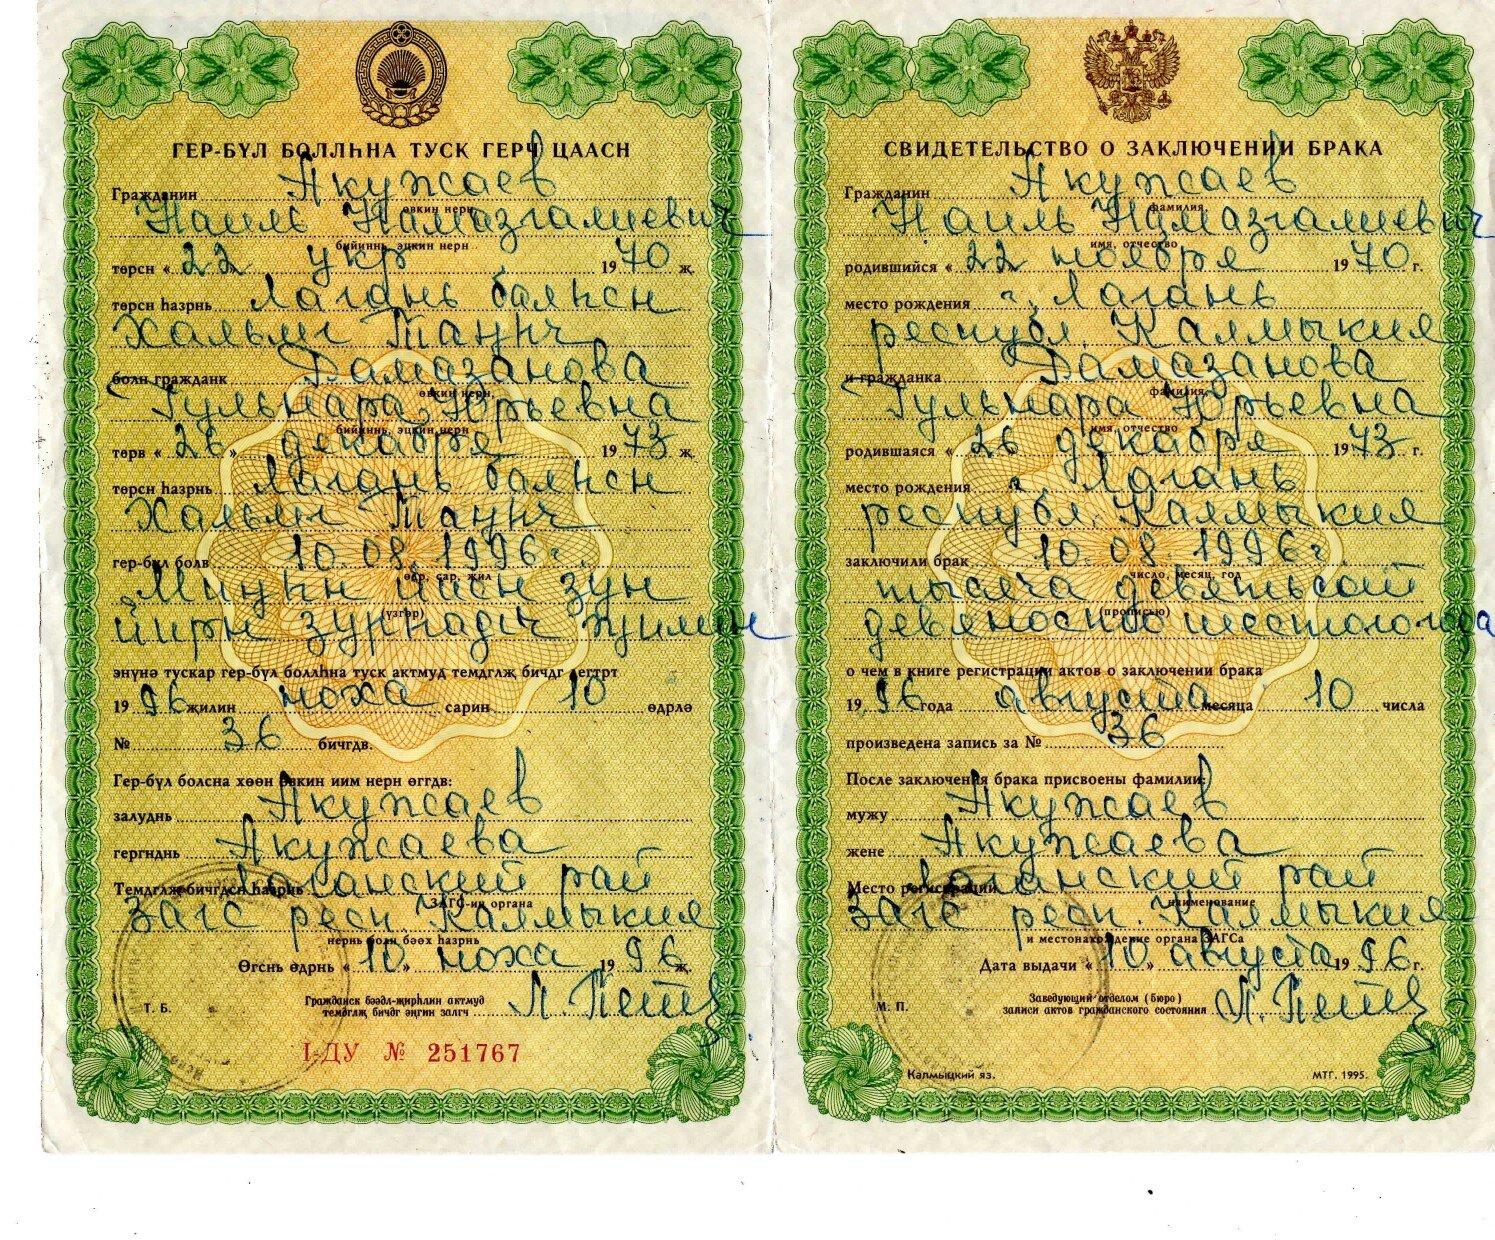 ГЕР-БҮЛ БОЛЛҺНА ТУСК ГЕРЧ ЦААСН
Гражданин Акужаев
өвкин нерн
Наиль Намазгалиевич
бийиннь, эцкин нерн
төрсн «22» укр 1970 җ.
төрсн һазрнь Лагань балһсн
Хальмг Таңһч
болн гражданк Рамазанова
өвкин нерн,
Гульнара Юрьевна
бийиннь, эцкин нерн
төрв «26» декабря 1973 җ.
төрсн һазрнь Лагань балһсн
Хальмг Таңһч
гер-бүл болв 10.08.1996 г
өдр, сар, җил
Миңһн йисн зун
(үзгәр)
йирн зурһадгч җилин
энүнә тускар гер-бүл боллһна туск актмуд темдглҗ бичдг дегтрт
1996 җилин ноха сарин 10 өдрлә
№ 36 бичгдв.
Гер-бүл болсна хөөн өвкин иим нерн өггдв:
залуднь Акужаев
гергнднь Акужаева
Темдглҗ бичгдсн һазрнь Лаганский рай
ЗАГС-ин органа
Загс респ. Калмыкия
нернь болн бәәх һазрнь
Өгснь өдрнь «10» ноха 1996 җ.
Т. Б.
Гражданск бәәдл-җирһлин актмуд
темдглҗ бичдг әңгин залгч
I-ДУ № 251767
СВИДЕТЕЛЬСТВО О ЗАКЛЮЧЕНИИ БРАКА
Гражданин Акужаев
фамилия,
Наиль Намазгалиевич
имя, отчество
родившийся «22 ноября 1970 г.
место рождения г. Лагань
республ. Калмыкия
и гражданка Рамазанова
фамилия,
Гульнара Юрьевна
имя, отчество
родившаяся «26 декабря 1973 г.
место рождения г. Лагань
республ. Калмыкия
заключили брак 10.08.1996 г
число, месяц, год
тысяча девятьсот
(прописью)
девяносто шестого года
о чем в книге регистрации актов о заключении брака
1996 года августа месяца 10 числа
произведена запись за № 36
После заключения брака присвоены фамилии:
мужу Акужаев
жене Акужаева
Место регистрации Лаганский рай
наименование
Загс респ. Калмыкия
и местонахождение органа ЗАГСа
Дата выдачи «10» августа 1996 г.
М. П.
Заведующий отделом (бюро)
записи актов гражданского состояния
Калмыцкий яз.
МТГ. 1995.